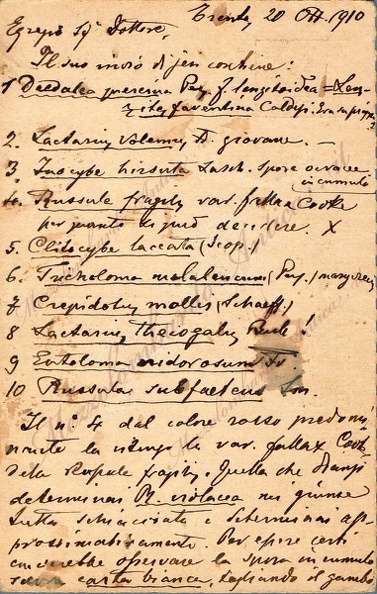 Trento, 20 Ott. 1910
Egregio Sig. Dottore,
Il suo invio di jeri contiene:
1 Daedalea Pers. f. lenzitoidea = Len-
zites faventina Caldesi.
2. Lactarius volemus Fr. giovane. —
3. Inocybe hirsuta Lasch. Spore ocracee
in cumulo
4. Russula fragilis var. fallax Cooke
per quanto si può decidere. X
5. Clitocybe laccata (Scop.)
6. Tricholoma melaleucum (Pers.)
7 Crepidotus mollis (Schaeff.)
8 Lactarius Theiogalus !
9 Entoloma nidorosum Fr.
10 Russula subfoetens Sm.
Il n° 4 dal colore rosso predomi-
nante la var. fallax Cook
della fragilis. Quella che
determinai R. violacea mi giunse
tutta schiacciata e determinai ap-
prossimativamente. Per essere certi
converrebbe osservare la spora in cumulo
carta bianca, tagliando il gambo